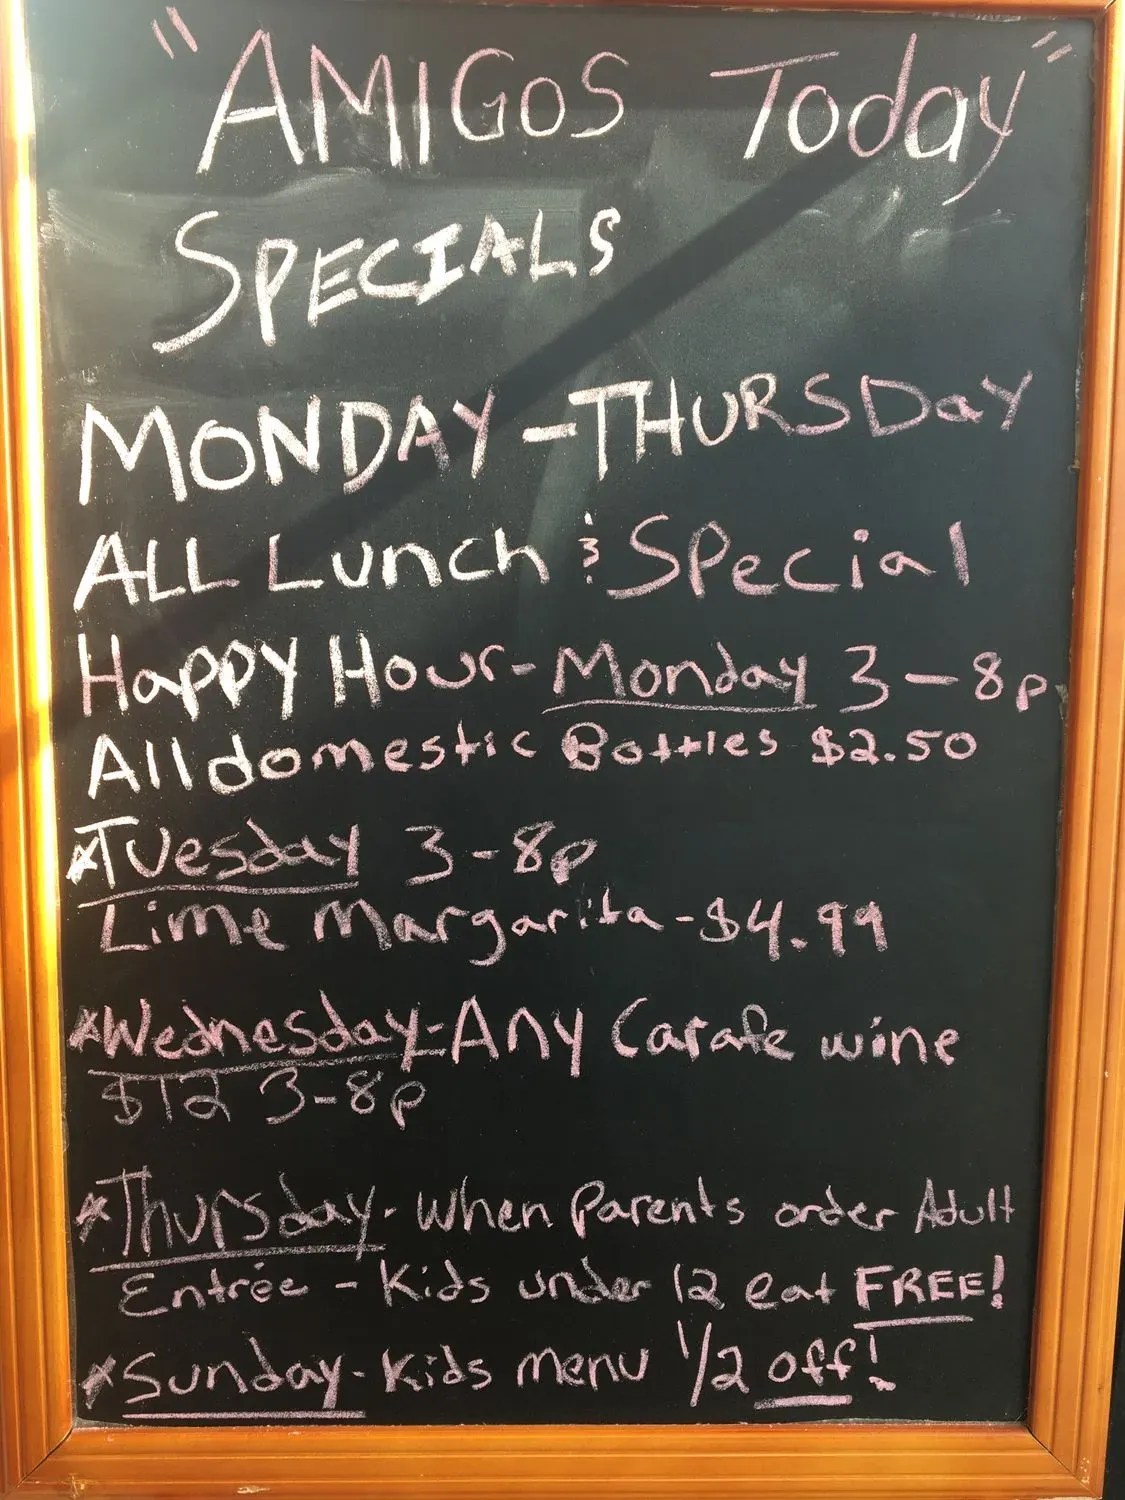 "AMIGOS Today"
SPECIALS
MONDAY - THURSDAY
ALL Lunch & Special
Happy Hour - Monday 3 - 8p
All domestic Bottles $2.50
*Tuesday 3 - 8p
Lime Margarita - $4.99
*Wednesday - Any Carafe wine
$12 3 - 8p
*Thursday - When Parents order Adult
Entrée - Kids under 12 eat FREE!
*Sunday - Kids menu 1/2 off!